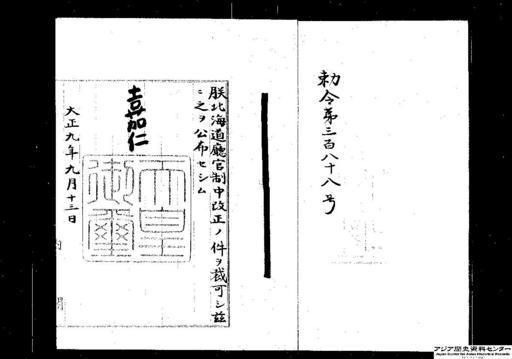 勅令第三百八十八号
朕北海道廳官制中改正ノ件ヲ裁可シ茲
ニ之ヲ公布セシム
嘉仁
天皇
御璽
大正九年九月十三日
アジア歴史資料センター
Japan Center for Asian Historical Records